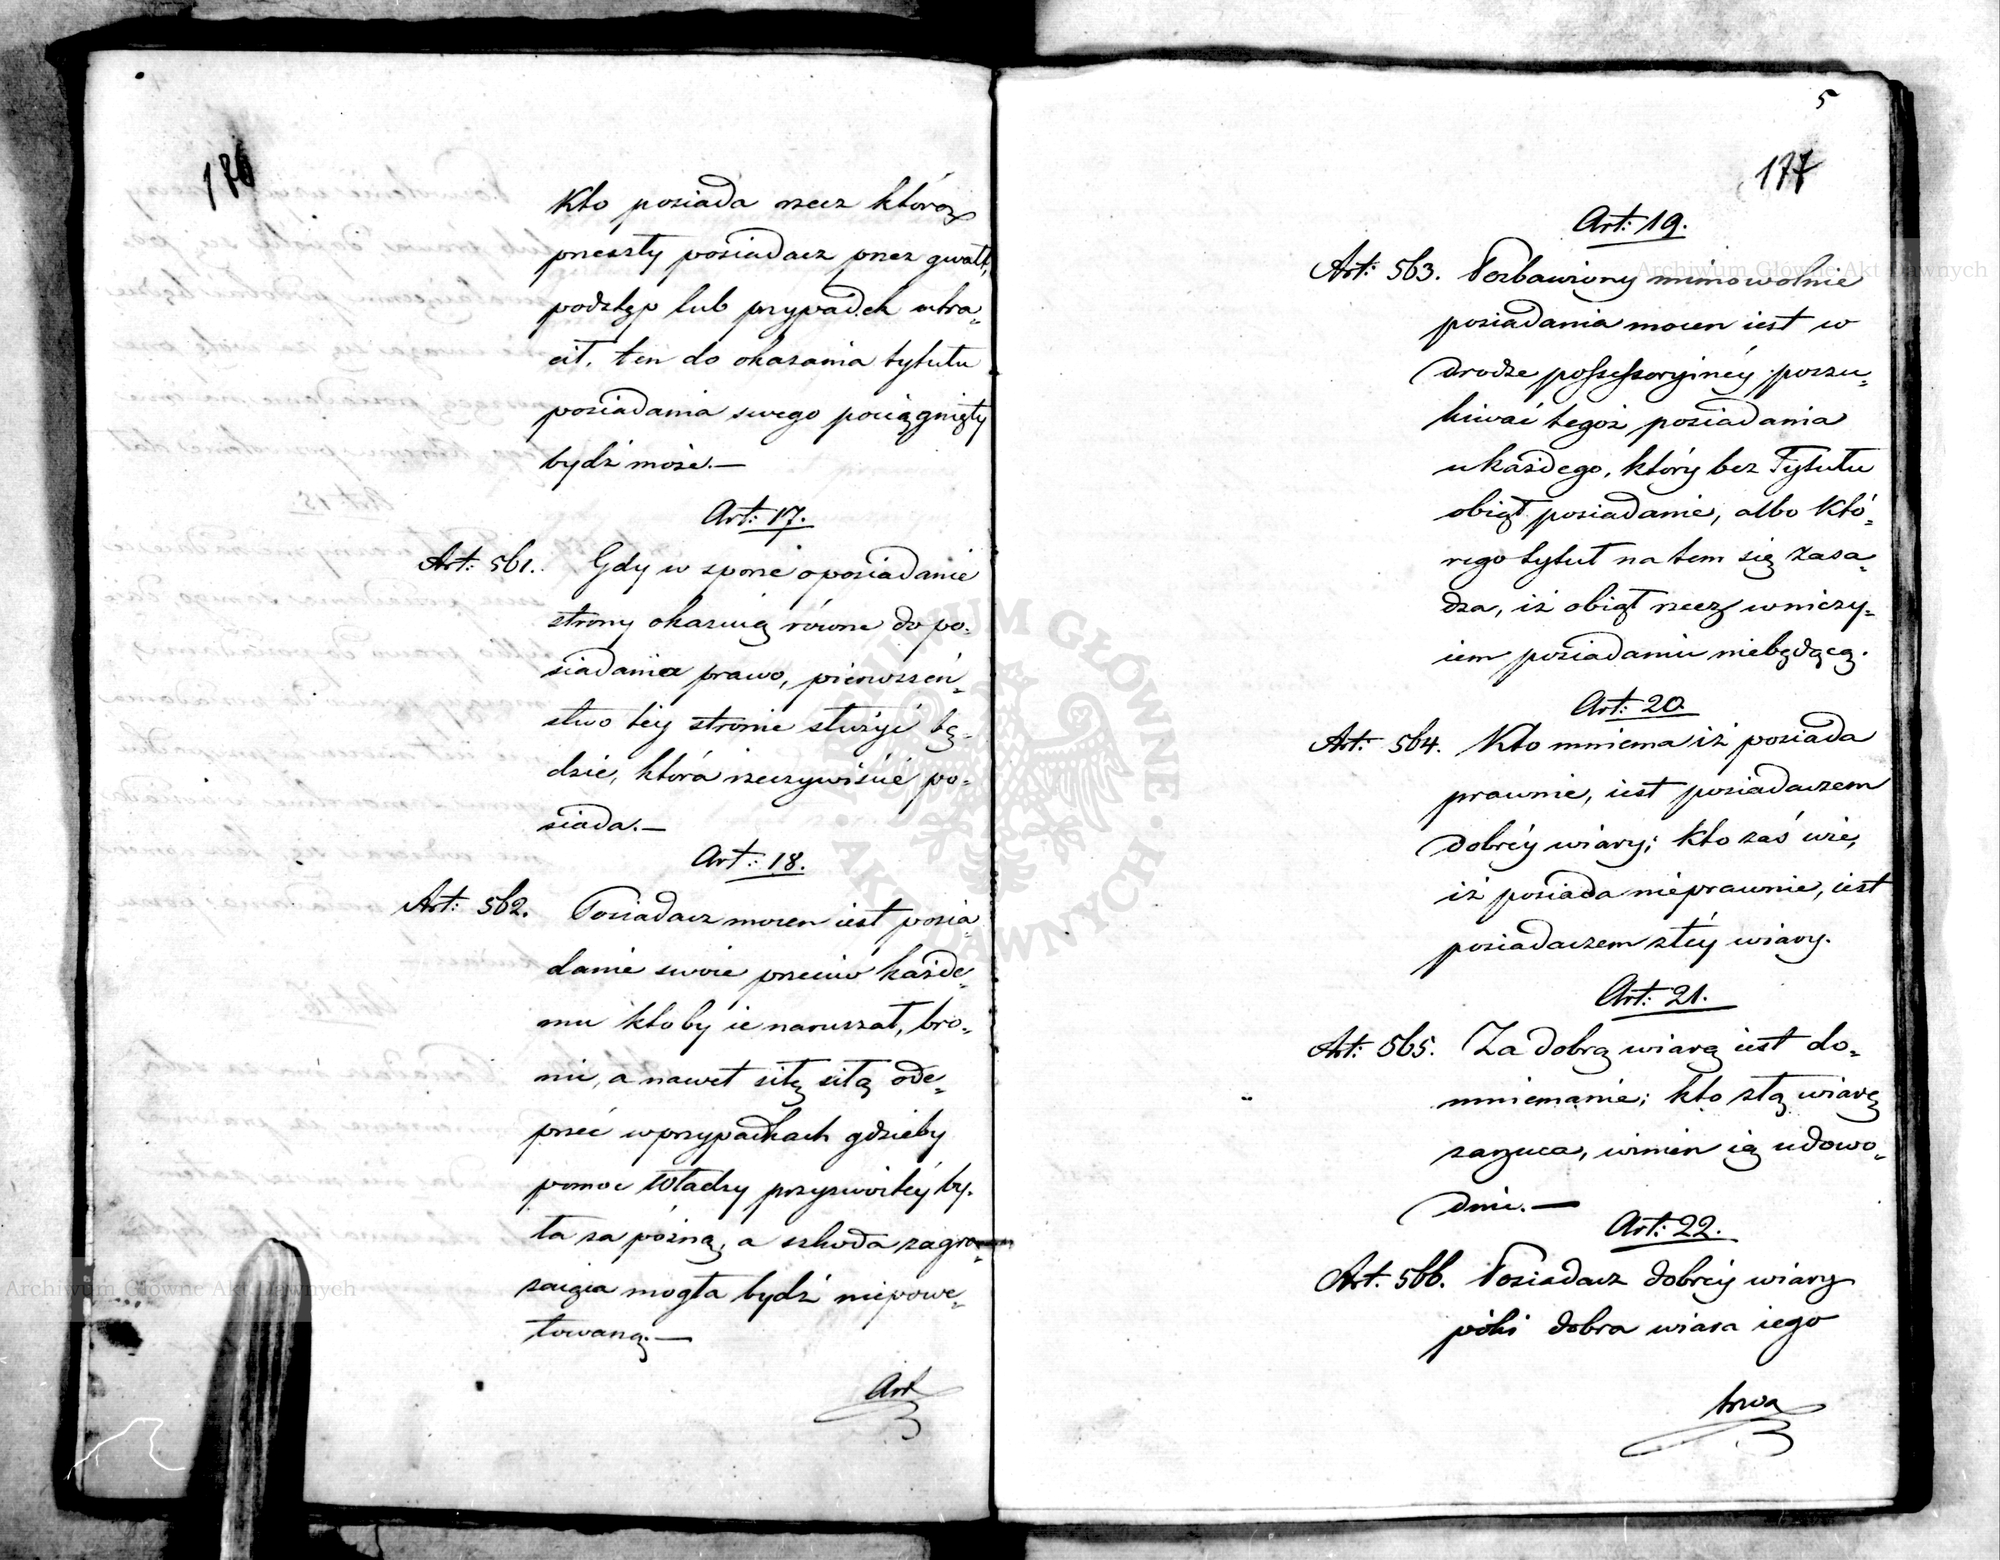 176
Kto posiada rzecz którą
przeszły posiadacz przez gwałt,
podstęp lub przypadek utra„
cił, ten do okazania tytułu
posiadania swego pociągnięty
bydź może.—
Art: 17.
Art: 561. Gdy w sporze o posiadanie
strony okazuią równe do po„
siadania prawo, pierwszeń„
stwo tey stronie służyć bę„
dzie, która rzeczywiście po„
siada.—
Art: 18.
Art: 562. Posiadacz mocen iest posia„
danie swoie przeciw każde„
mu ktoby ie naruszał, bro„
nić, a nawet siłę siłą ode„
przeć w przypadkach gdzieby
pomoc Władzy przyzwoitéy by„
ła za późną, a szkoda zagra„
żaiąca mogła bydź niepowe„
towaną.—
Art
5
177
Art: 19.
Art: 563. Pozbawiony mimowolnie
posiadania mocen iest w
drodze possessoryinéy poszu„
kiwać tegoż posiadania
u każdego, który bez Tytułu
obiął posiadanie, albo któ„
rego tytuł na tem się zasa„
dza, iż obiął rzecz w niczy„
iem posiadaniu niebędącą.
Art: 20.
Art: 564. Kto mniema iż posiada
prawnie, iest posiadaczem
dobréy wiary; kto zaś wie,
iż posiada nieprawnie, iest
posiadaczem złéy wiary.
Art: 21.
Art: 565. Za dobrą wiarą iest do„
mniemanie; kto złą wiarę
zarzuca, winien ią udowo„
dnić.—
Art: 22.
Art: 566. Posiadacz dobréy wiary
póki dobra wiara iego
trwa
Archiwum Główne Akt Dawnych
Archiwum Główne Akt Dawnych
ARCHIWUM GŁÓWNE · AKT DAWNYCH ·